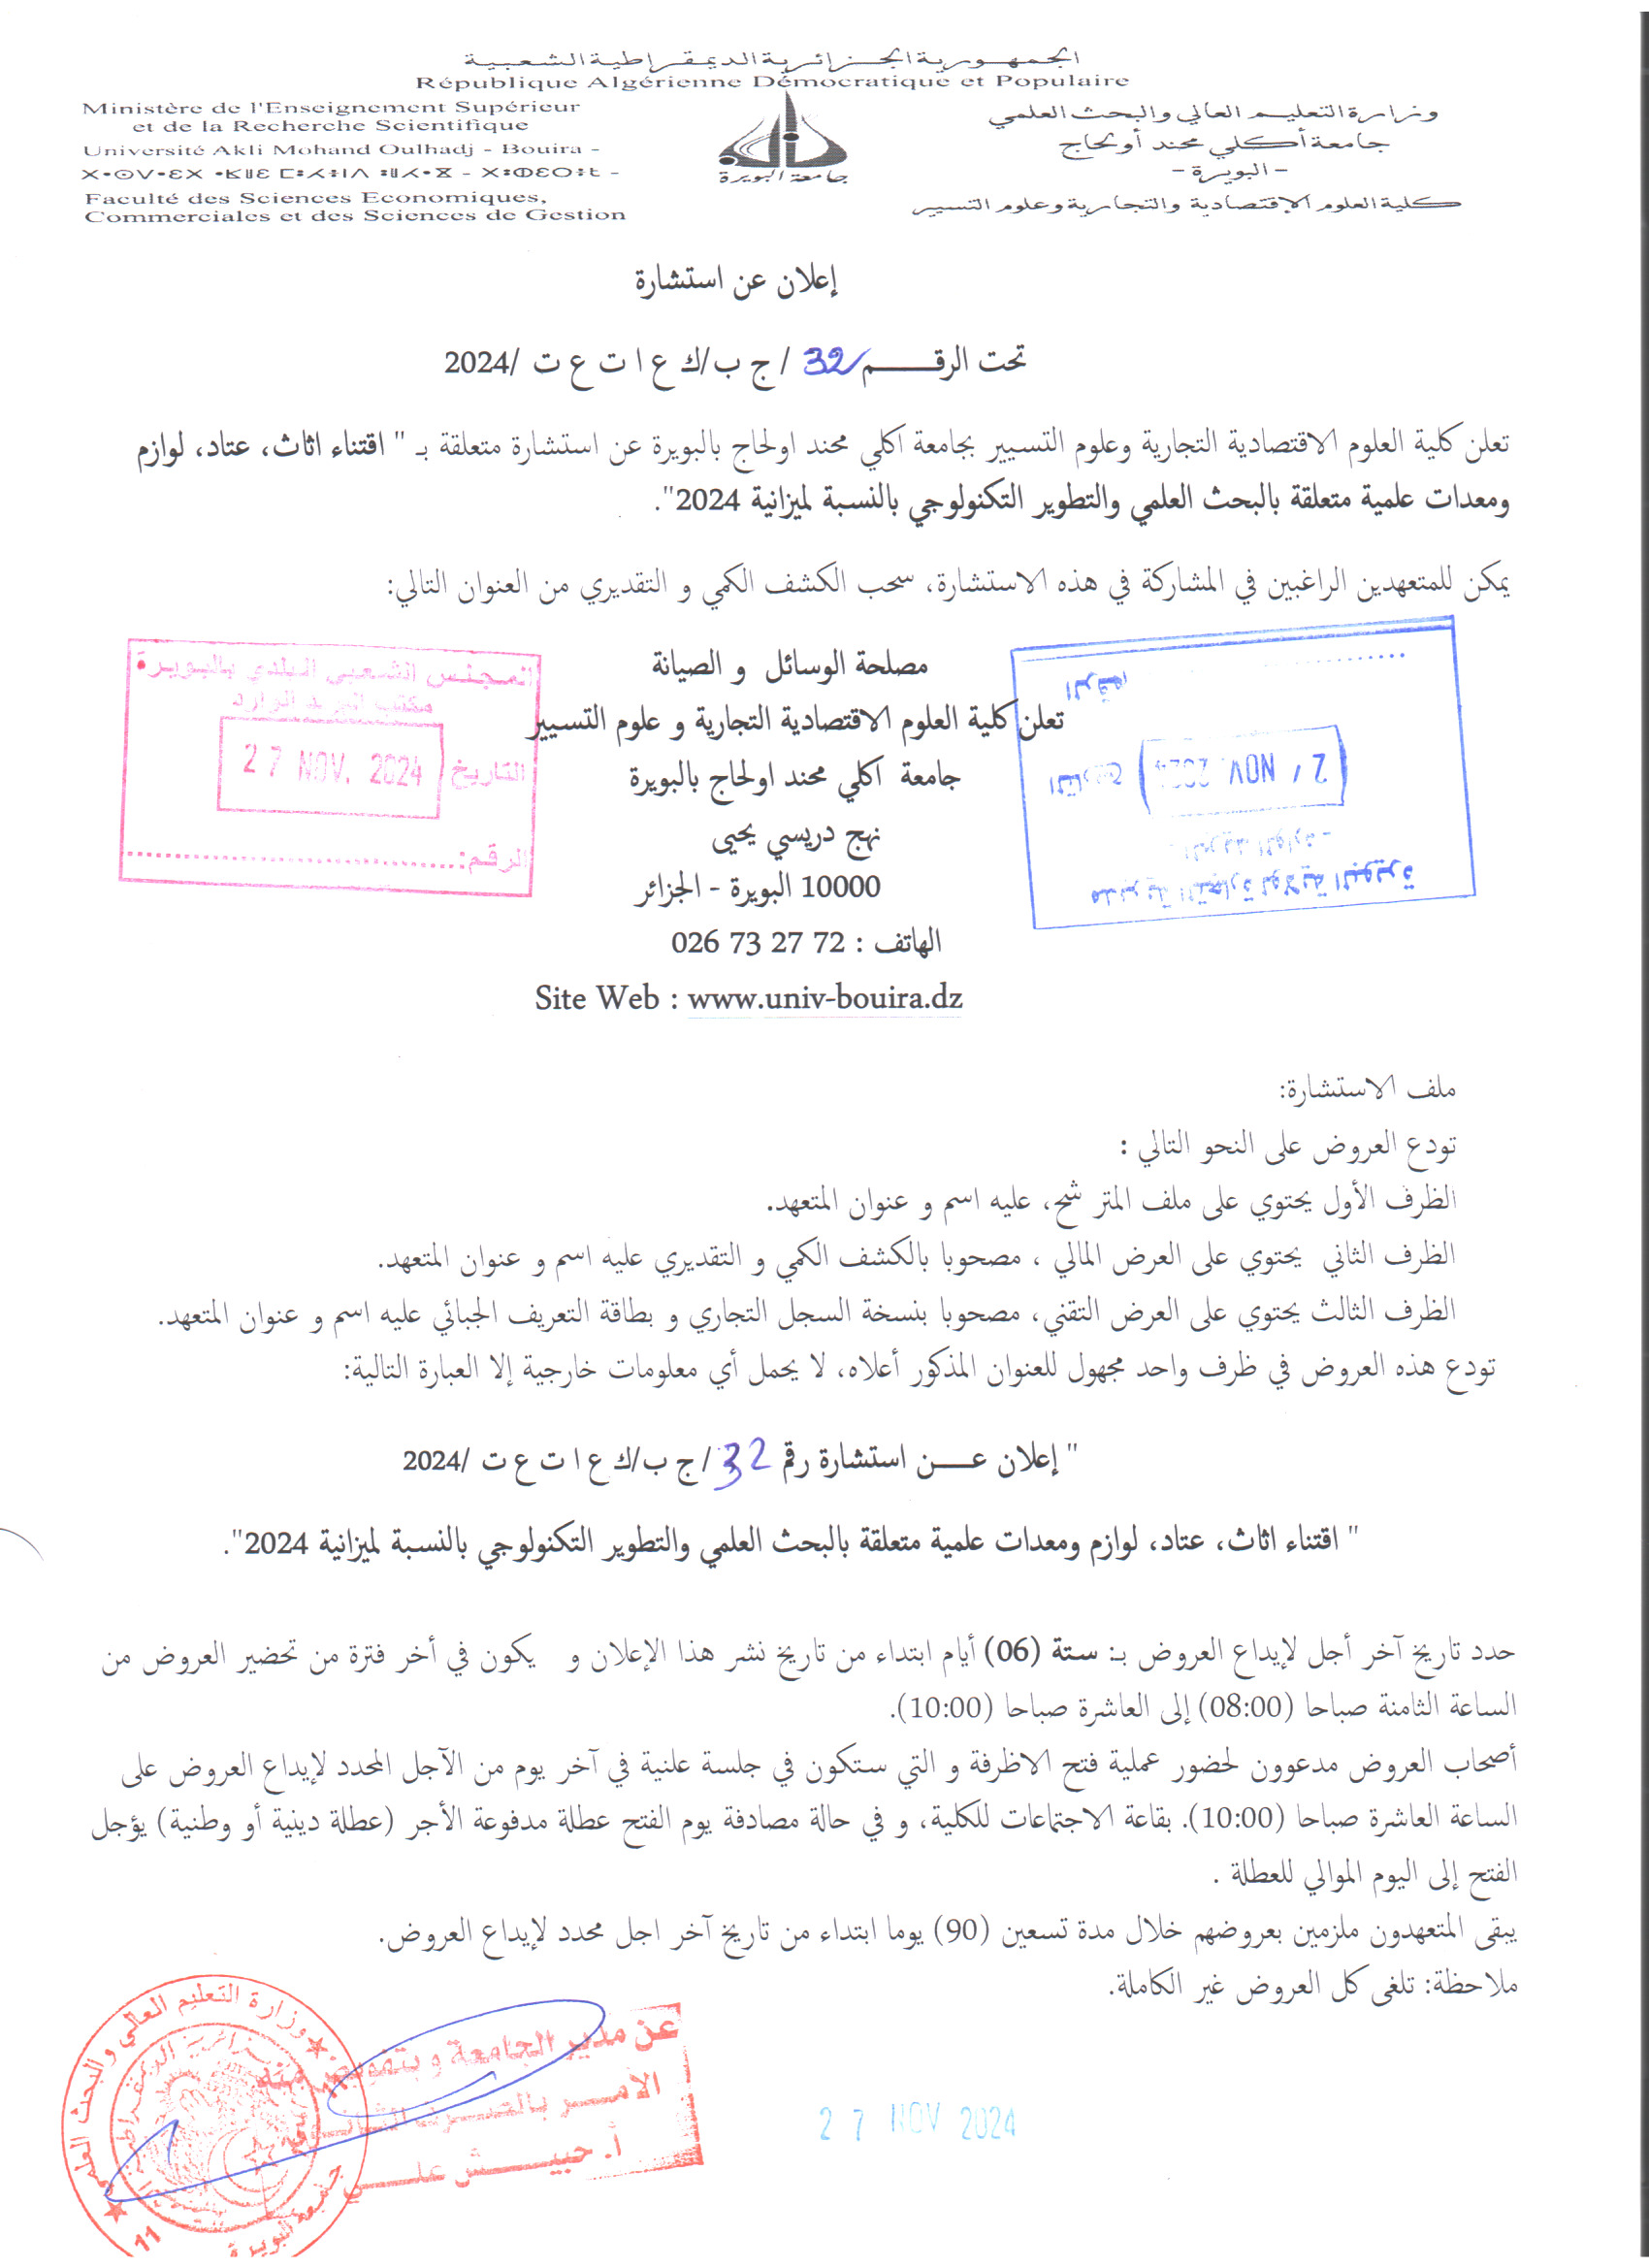 الجمهورية الجزائرية الديمقراطية الشعبية
République Algérienne Démocratique et Populaire
Ministère de l'Enseignement Supérieur
et de la Recherche Scientifique
Université Akli Mohand Oulhadj - Bouira -
ⵅ•ⵙⴷ•ⵉⵅ •ⴽⵍⵉ ⵎⵓⵃⵏⴷ
Faculté des Sciences Economiques,
Commerciales et des Sciences de Gestion
جامعة البويرة
وزارة التعليم العالي والبحث العلمي
جامعة أكلي محند أولحاج
- البويرة -
كلية العلوم الاقتصادية والتجارية وعلوم التسيير
إعلان عن استشارة
تحت الرقم 32 / ج ب/ك ع ا ت ع ت /2024
تعلن كلية العلوم الاقتصادية التجارية وعلوم التسيير بجامعة اكلي محند اولحاج بالبويرة عن استشارة متعلقة بـ " اقتناء اثاث، عتاد، لوازم
ومعدات علمية متعلقة بالبحث العلمي والتطوير التكنولوجي بالنسبة لميزانية 2024".
يمكن للمتعهدين الراغبين في المشاركة في هذه الاستشارة، سحب الكشف الكمي و التقديري من العنوان التالي:
مصلحة الوسائل و الصيانة
تعلن كلية العلوم الاقتصادية التجارية و علوم التسيير
جامعة اكلي محند اولحاج بالبويرة
نهج دريسي يحيى
10000 البويرة - الجزائر
الهاتف : 026 73 27 72
Site Web : www.univ-bouira.dz
المجلس الشعبي البلدي بالبويرة
مكتب البريد الوارد
التاريخ 27 NOV. 2024
الرقم:
مديرية التجارة لولاية البويرة
- البريد الوارد -
التاريخ NOV
الرقم
ملف الاستشارة:
تودع العروض على النحو التالي :
الظرف الأول يحتوي على ملف المتر شح، عليه اسم و عنوان المتعهد.
الظرف الثاني يحتوي على العرض المالي ، مصحوبا بالكشف الكمي و التقديري عليه اسم و عنوان المتعهد.
الظرف الثالث يحتوي على العرض التقني، مصحوبا بنسخة السجل التجاري و بطاقة التعريف الجبائي عليه اسم و عنوان المتعهد.
تودع هذه العروض في ظرف واحد مجهول للعنوان المذكور أعلاه، لا يحمل أي معلومات خارجية إلا العبارة التالية:
" إعلان عن استشارة رقم 32 / ج ب/ك ع ا ت ع ت /2024
" اقتناء اثاث، عتاد، لوازم ومعدات علمية متعلقة بالبحث العلمي والتطوير التكنولوجي بالنسبة لميزانية 2024".
حدد تاريخ آخر أجل لإيداع العروض بـ: ستة (06) أيام ابتداء من تاريخ نشر هذا الإعلان و يكون في أخر فترة من تحضير العروض من
الساعة الثامنة صباحا (08:00) إلى العاشرة صباحا (10:00).
أصحاب العروض مدعوون لحضور عملية فتح الاظرفة و التي ستكون في جلسة علنية في آخر يوم من الآجل المحدد لإيداع العروض على
الساعة العاشرة صباحا (10:00). بقاعة الاجتماعات للكلية، و في حالة مصادفة يوم الفتح عطلة مدفوعة الأجر (عطلة دينية أو وطنية) يؤجل
الفتح إلى اليوم الموالي للعطلة .
يبقى المتعهدون ملزمين بعروضهم خلال مدة تسعين (90) يوما ابتداء من تاريخ آخر اجل محدد لإيداع العروض.
ملاحظة: تلغى كل العروض غير الكاملة.
عن مدير الجامعة و بتفويض منه
الآمر بالصرف الثانوي
أ. حبيش علي
27 NOV 2024
وزارة التعليم العالي والبحث العلمي
جامعة البويرة
11